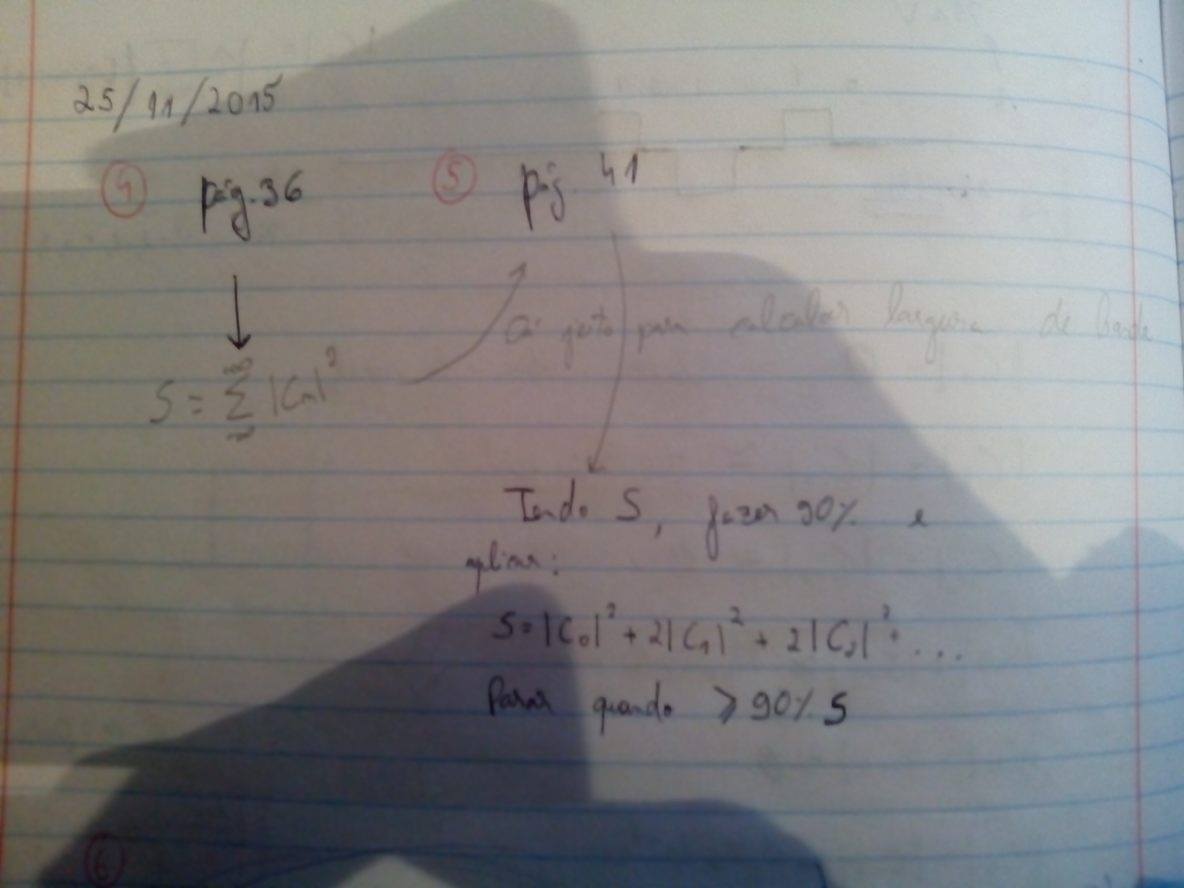 25/11/2015
④ pág. 36
⑤ pág. 41
jeito para calcular largura de banda
S = Σ |Cn|²
+∞
-∞
Tendo S, fazer 90% e
aplicar:
S = |C₀|² + 2|C₁|² + 2|C₂|² + ...
Parar quando ⩾ 90% S
⑥